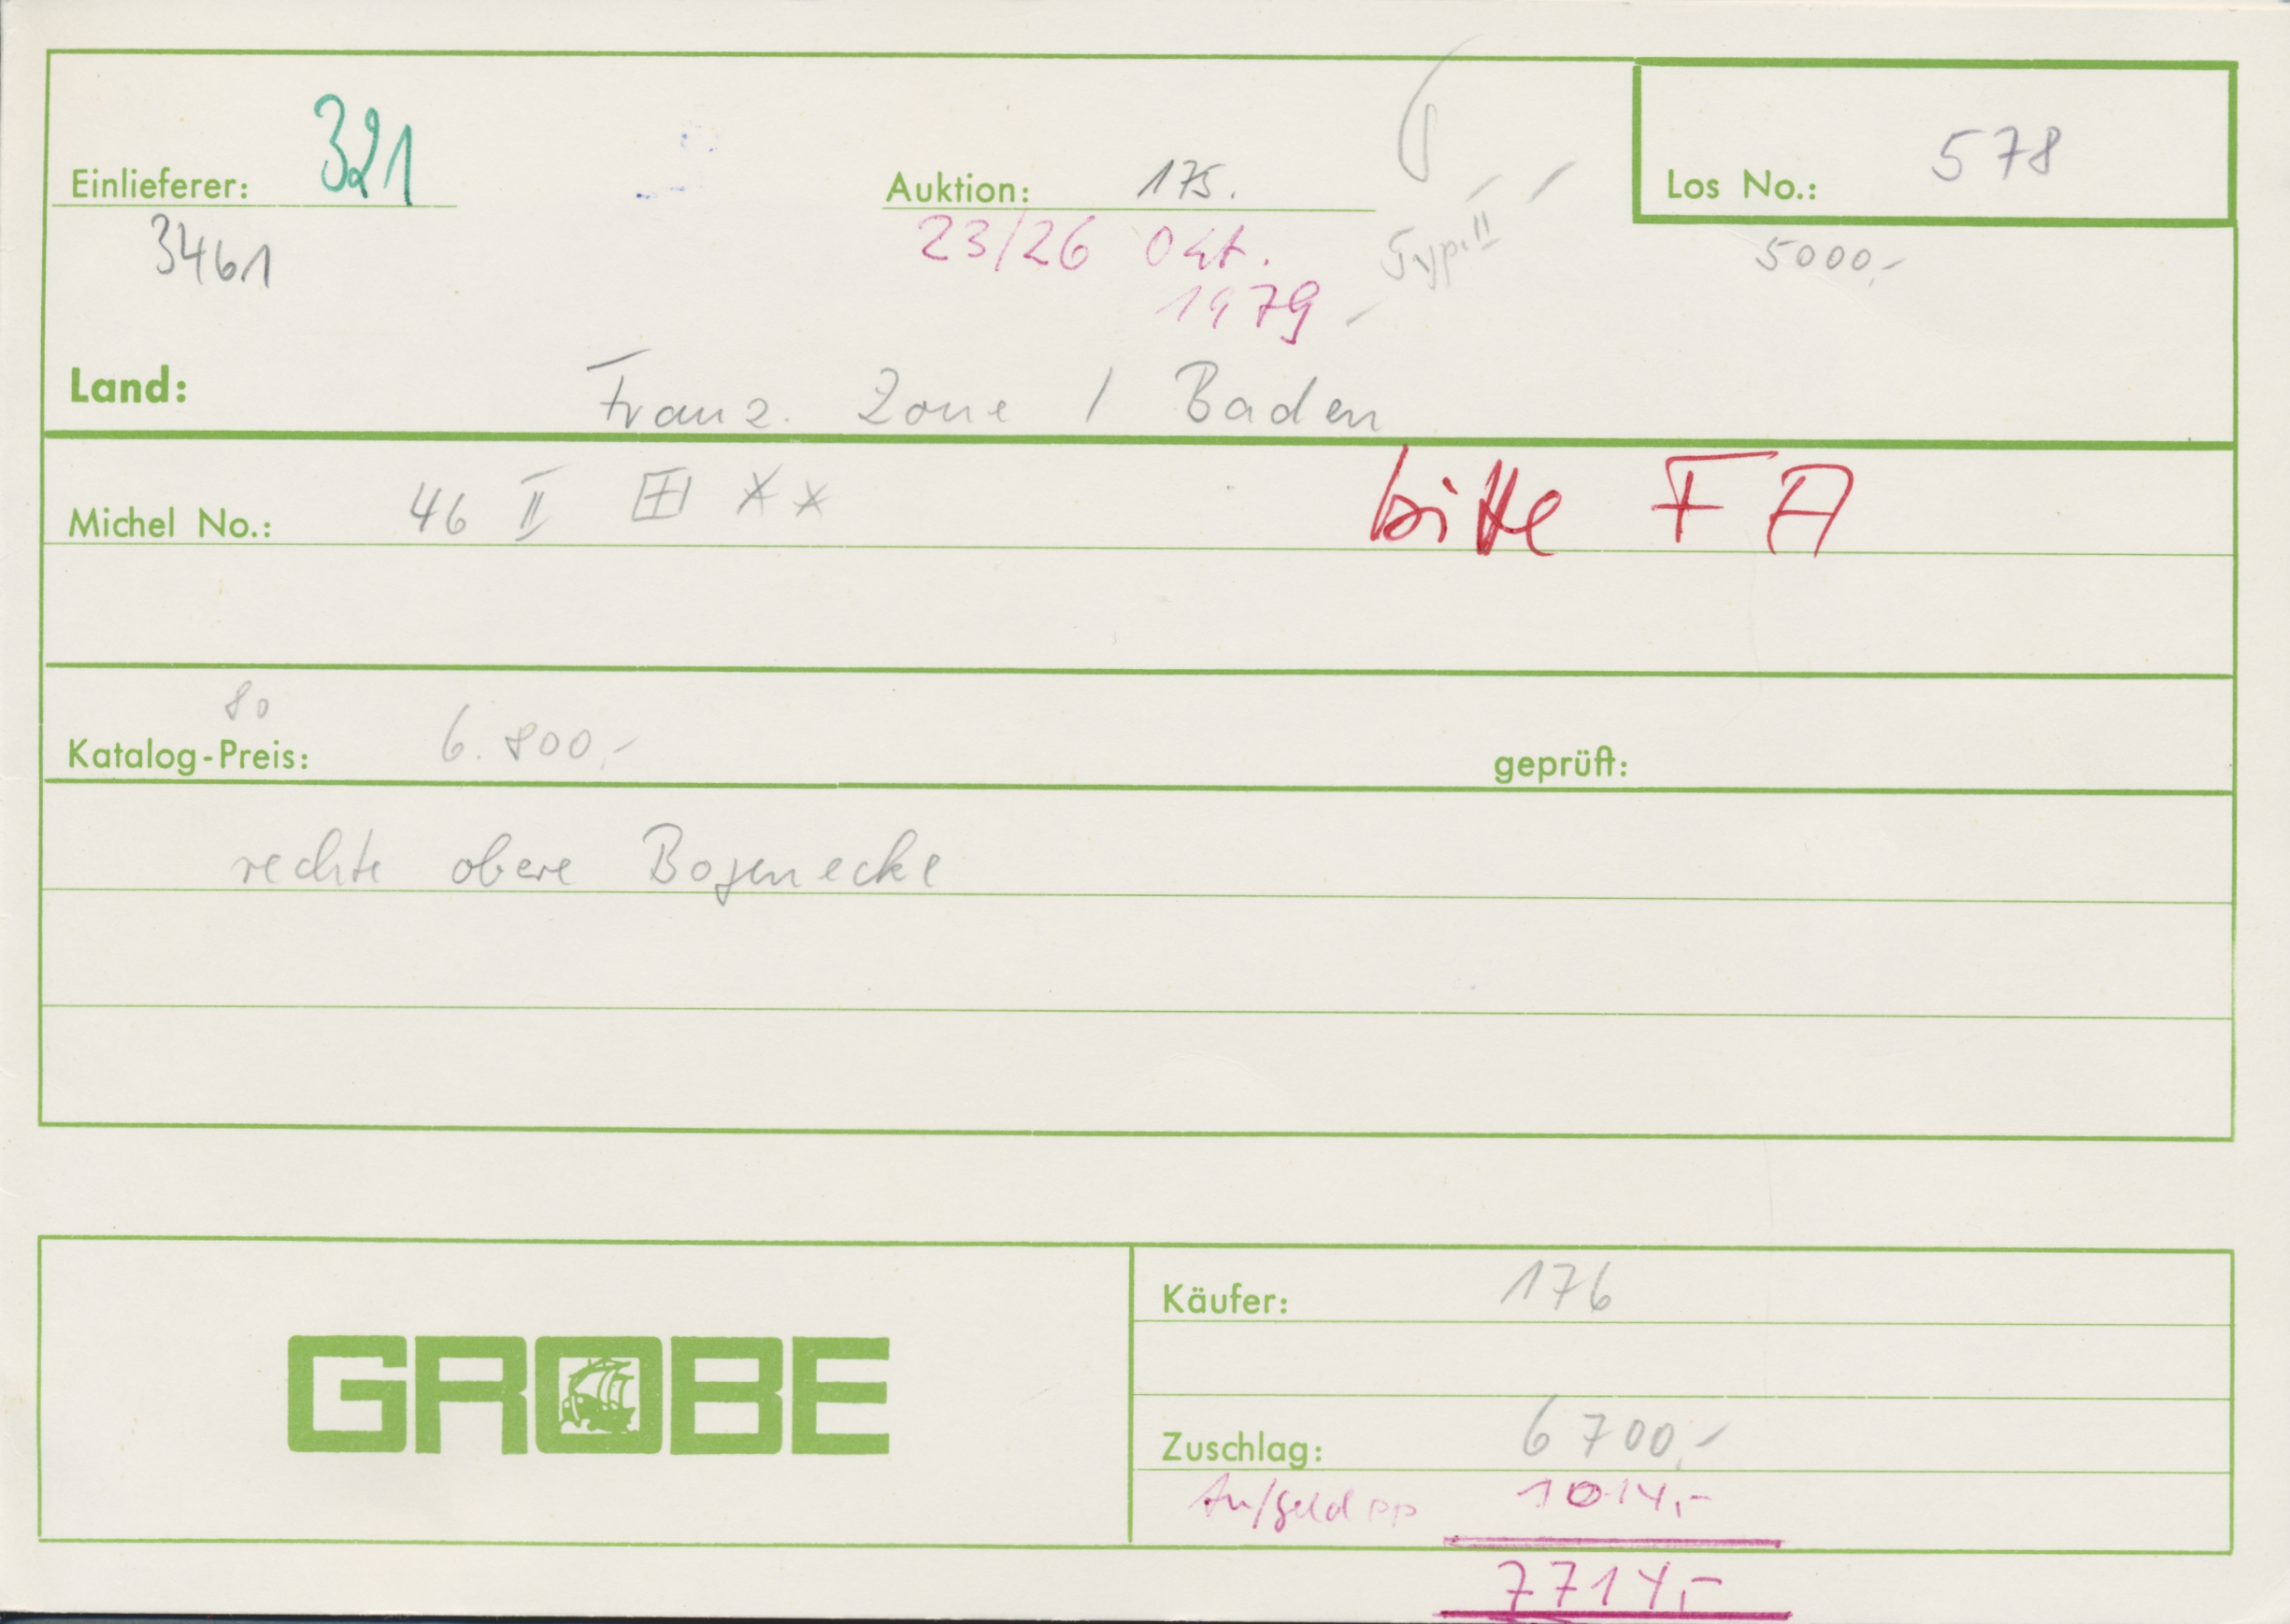 Einlieferer: 321
Auktion: 175.
Los No.: 578
3461
23/26 Okt.
1979
Typ II
5000,-
Land: Franz. Zone / Baden
Michel No.: 46 II ⊞ **
bitte FA
80
Katalog-Preis: 6.800,-
geprüft:
rechte obere Bogenecke
GROBE
Käufer: 176
Zuschlag: 6700,-
Aufgeld pp 1014,-
7714,-